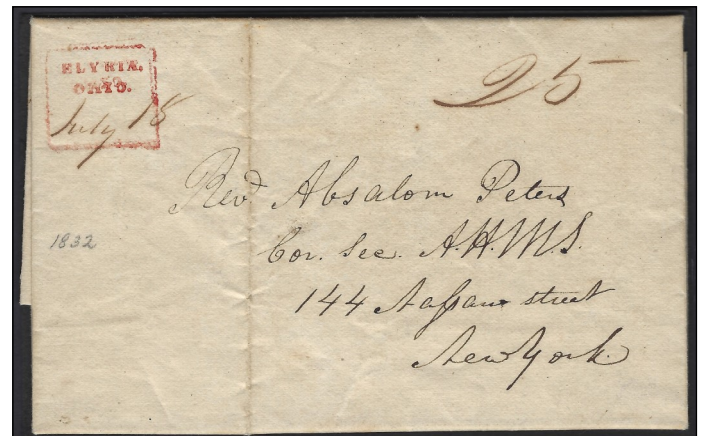 ELYRIA.
OHIO.
July 18
25
Revd Absalom Peters
Cor. Sec. A.H.M.S.
144 Nassau street
New York
1832